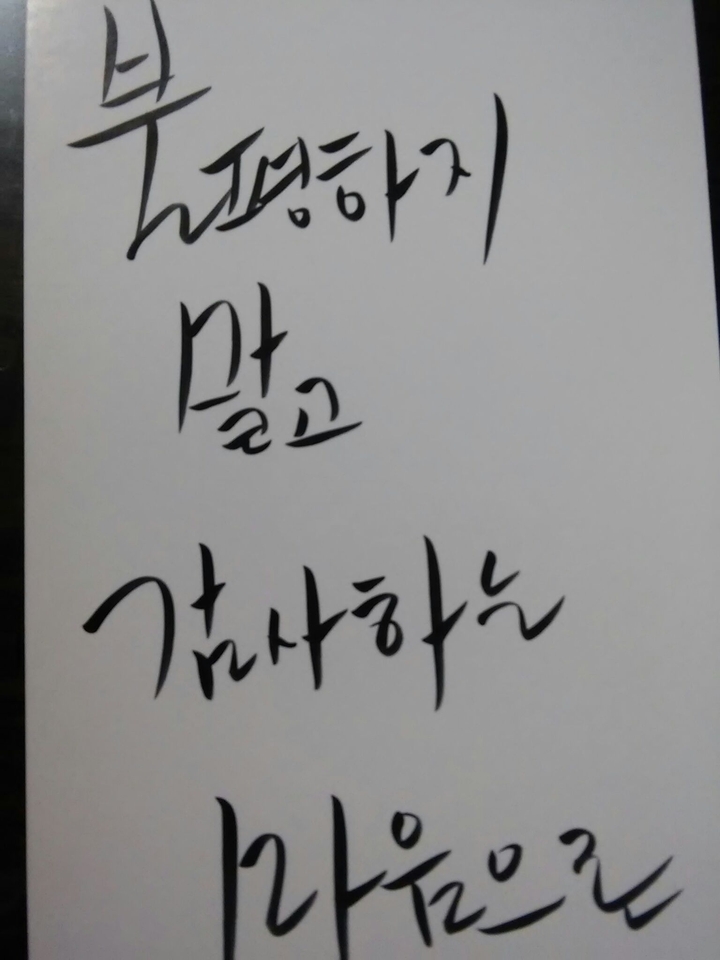 불평하지
말고
감사하는
마음으로